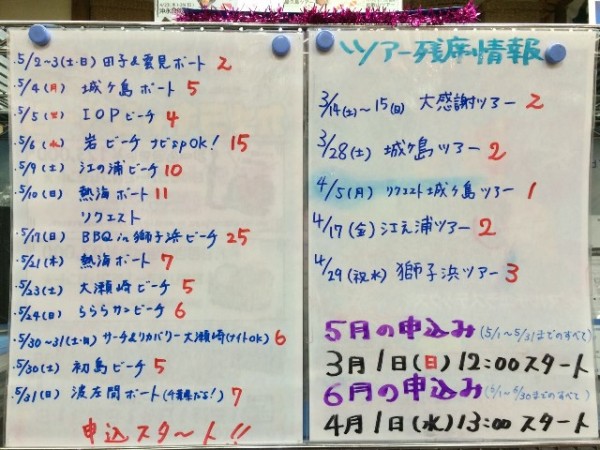 ・5/2~3(土・日) 田子&雲見ボート 2
・5/4(月) 城ヶ島ボート 5
・5/5(火) IOPビーチ 4
・5/6(水) 岩ビーチ ナビSPOK! 15
・5/9(土) 江の浦ビーチ 10
・5/10(日) 熱海ボート 11
リクエスト
・5/17(日) BBQ in 獅子浜ビーチ 25
・5/21(木) 熱海ボート 7
・5/23(土) 大瀬崎ビーチ 5
・5/24(日) らららサンビーチ 6
・5/30~31(土・日) サーチ&リカバリー大瀬崎(ナイトOK) 6
・5/30(土) 初島ビーチ 5
・5/31(日) 波左間ボート(千葉県だよ!) 7
申込スタ~ト!!
ツアー残席情報
3/14(土)~15(日) 大感謝ツアー 2
3/28(土) 城ヶ島ツアー 2
4/5(月) リクエスト城ヶ島ツアー 1
4/17(金) 江之浦ツアー 2
4/29(祝水) 獅子浜ツアー 3
5月の申込み(5/1~5/31までのすべて)
3月1日(日) 12:00スタート
6月の申込み(6/1~6/30までのすべて)
4月1日(水) 13:00スタート